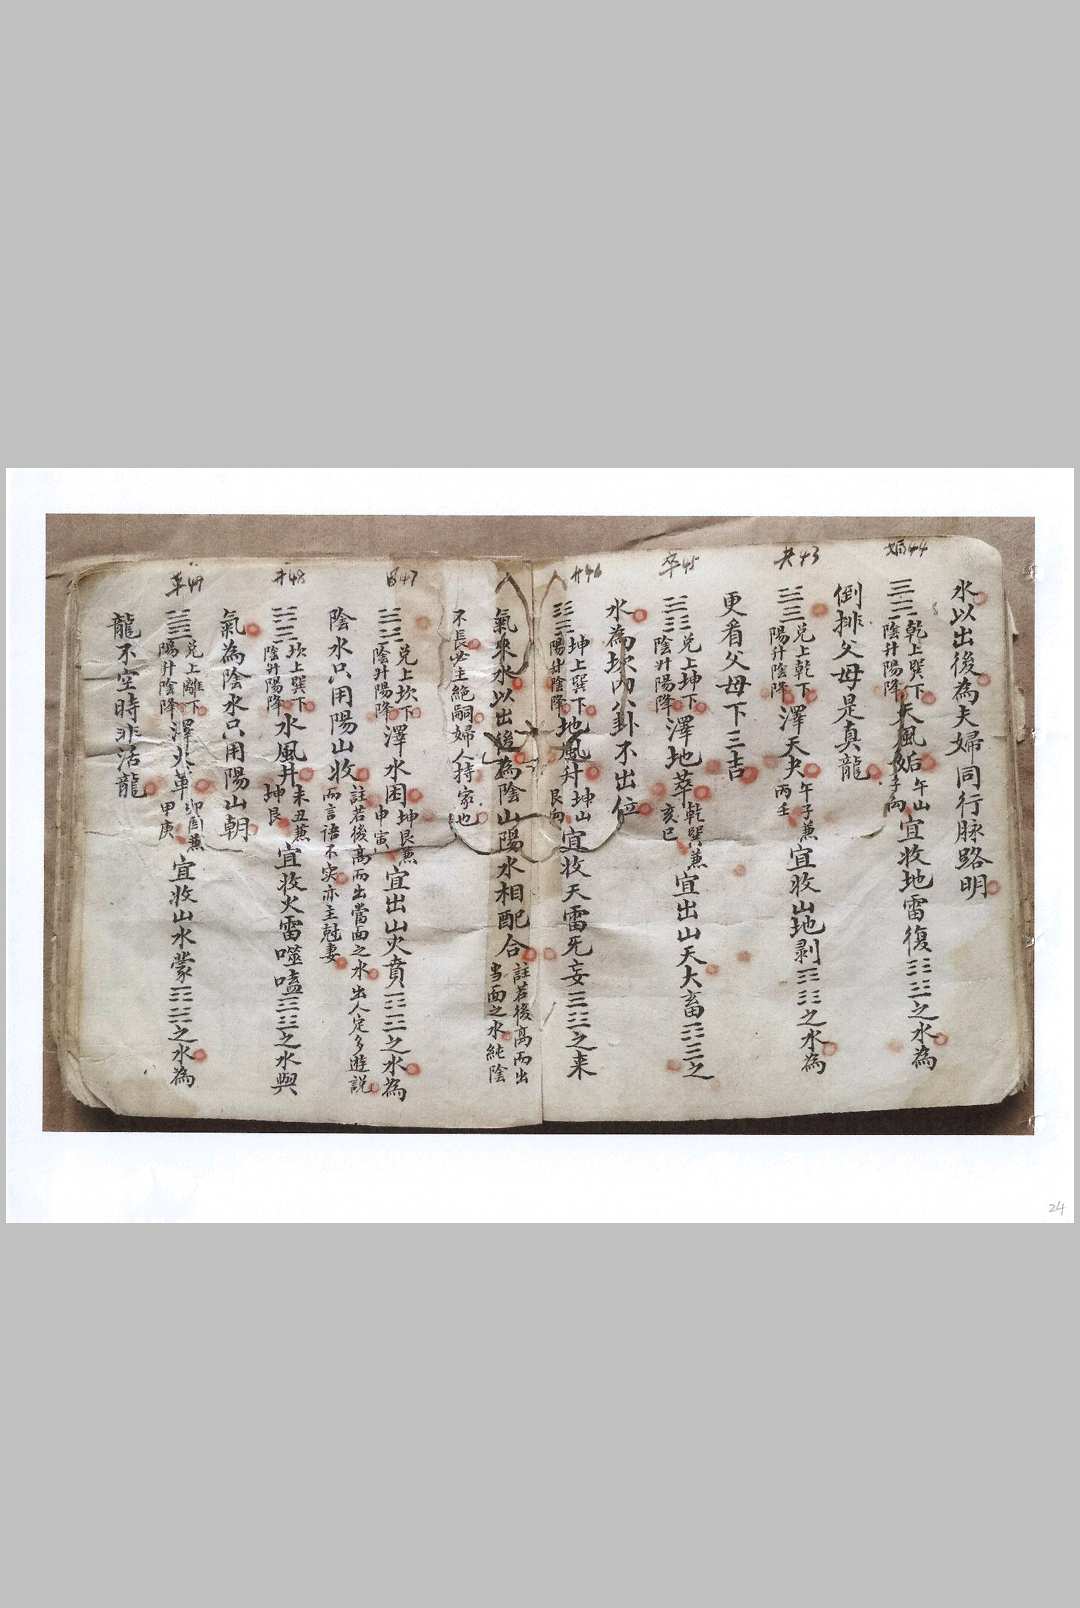 水以出後為夫婦同行脉路明
姤44
乾上巽下
陰升陽降
天風姤
午山
子向
宜收地雷復
之水為
倒排父母是真龍
夬43
兌上乾下
陽升陰降
澤天夬
午子兼
丙壬
宜收山地剥
之水為
更看父母下三吉
萃45
兌上坤下
陰升陽降
澤地萃
乾巽兼
亥巳
宜出山天大畜
之
水為坎內八卦不出位
升46
坤上巽下
陽升陰降
地風升
坤山
艮向
宜收天雷旡妄
之来
氣來水以出後為陰山陽水相配合
註若後高而出
当面之水純陰
不長必主絕嗣婦人持家也
困47
兌上坎下
陰升陽降
澤水困
坤艮兼
申寅
宜出山火賁
之水為
陰水只用陽山收
註若後高而出當面之水出人定多遊說
而言語不实亦主尅妻
井48
坎上巽下
陰升陽降
水風井
未丑兼
坤艮
宜收火雷噬嗑
之水與
氣為陰水只用陽山朝
革49
兌上離下
陽升陰降
澤火革
卯酉兼
甲庚
宜收山水蒙
之水為
龍不空時非活龍
24